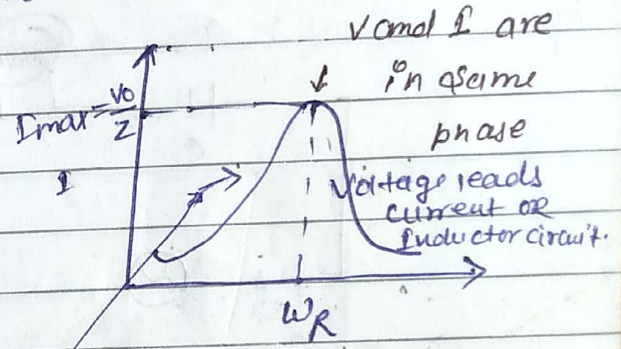 V and I are
in same
phase
Imax = V0/Z
I
Voltage leads
current OR
Inductor circuit.
ωR